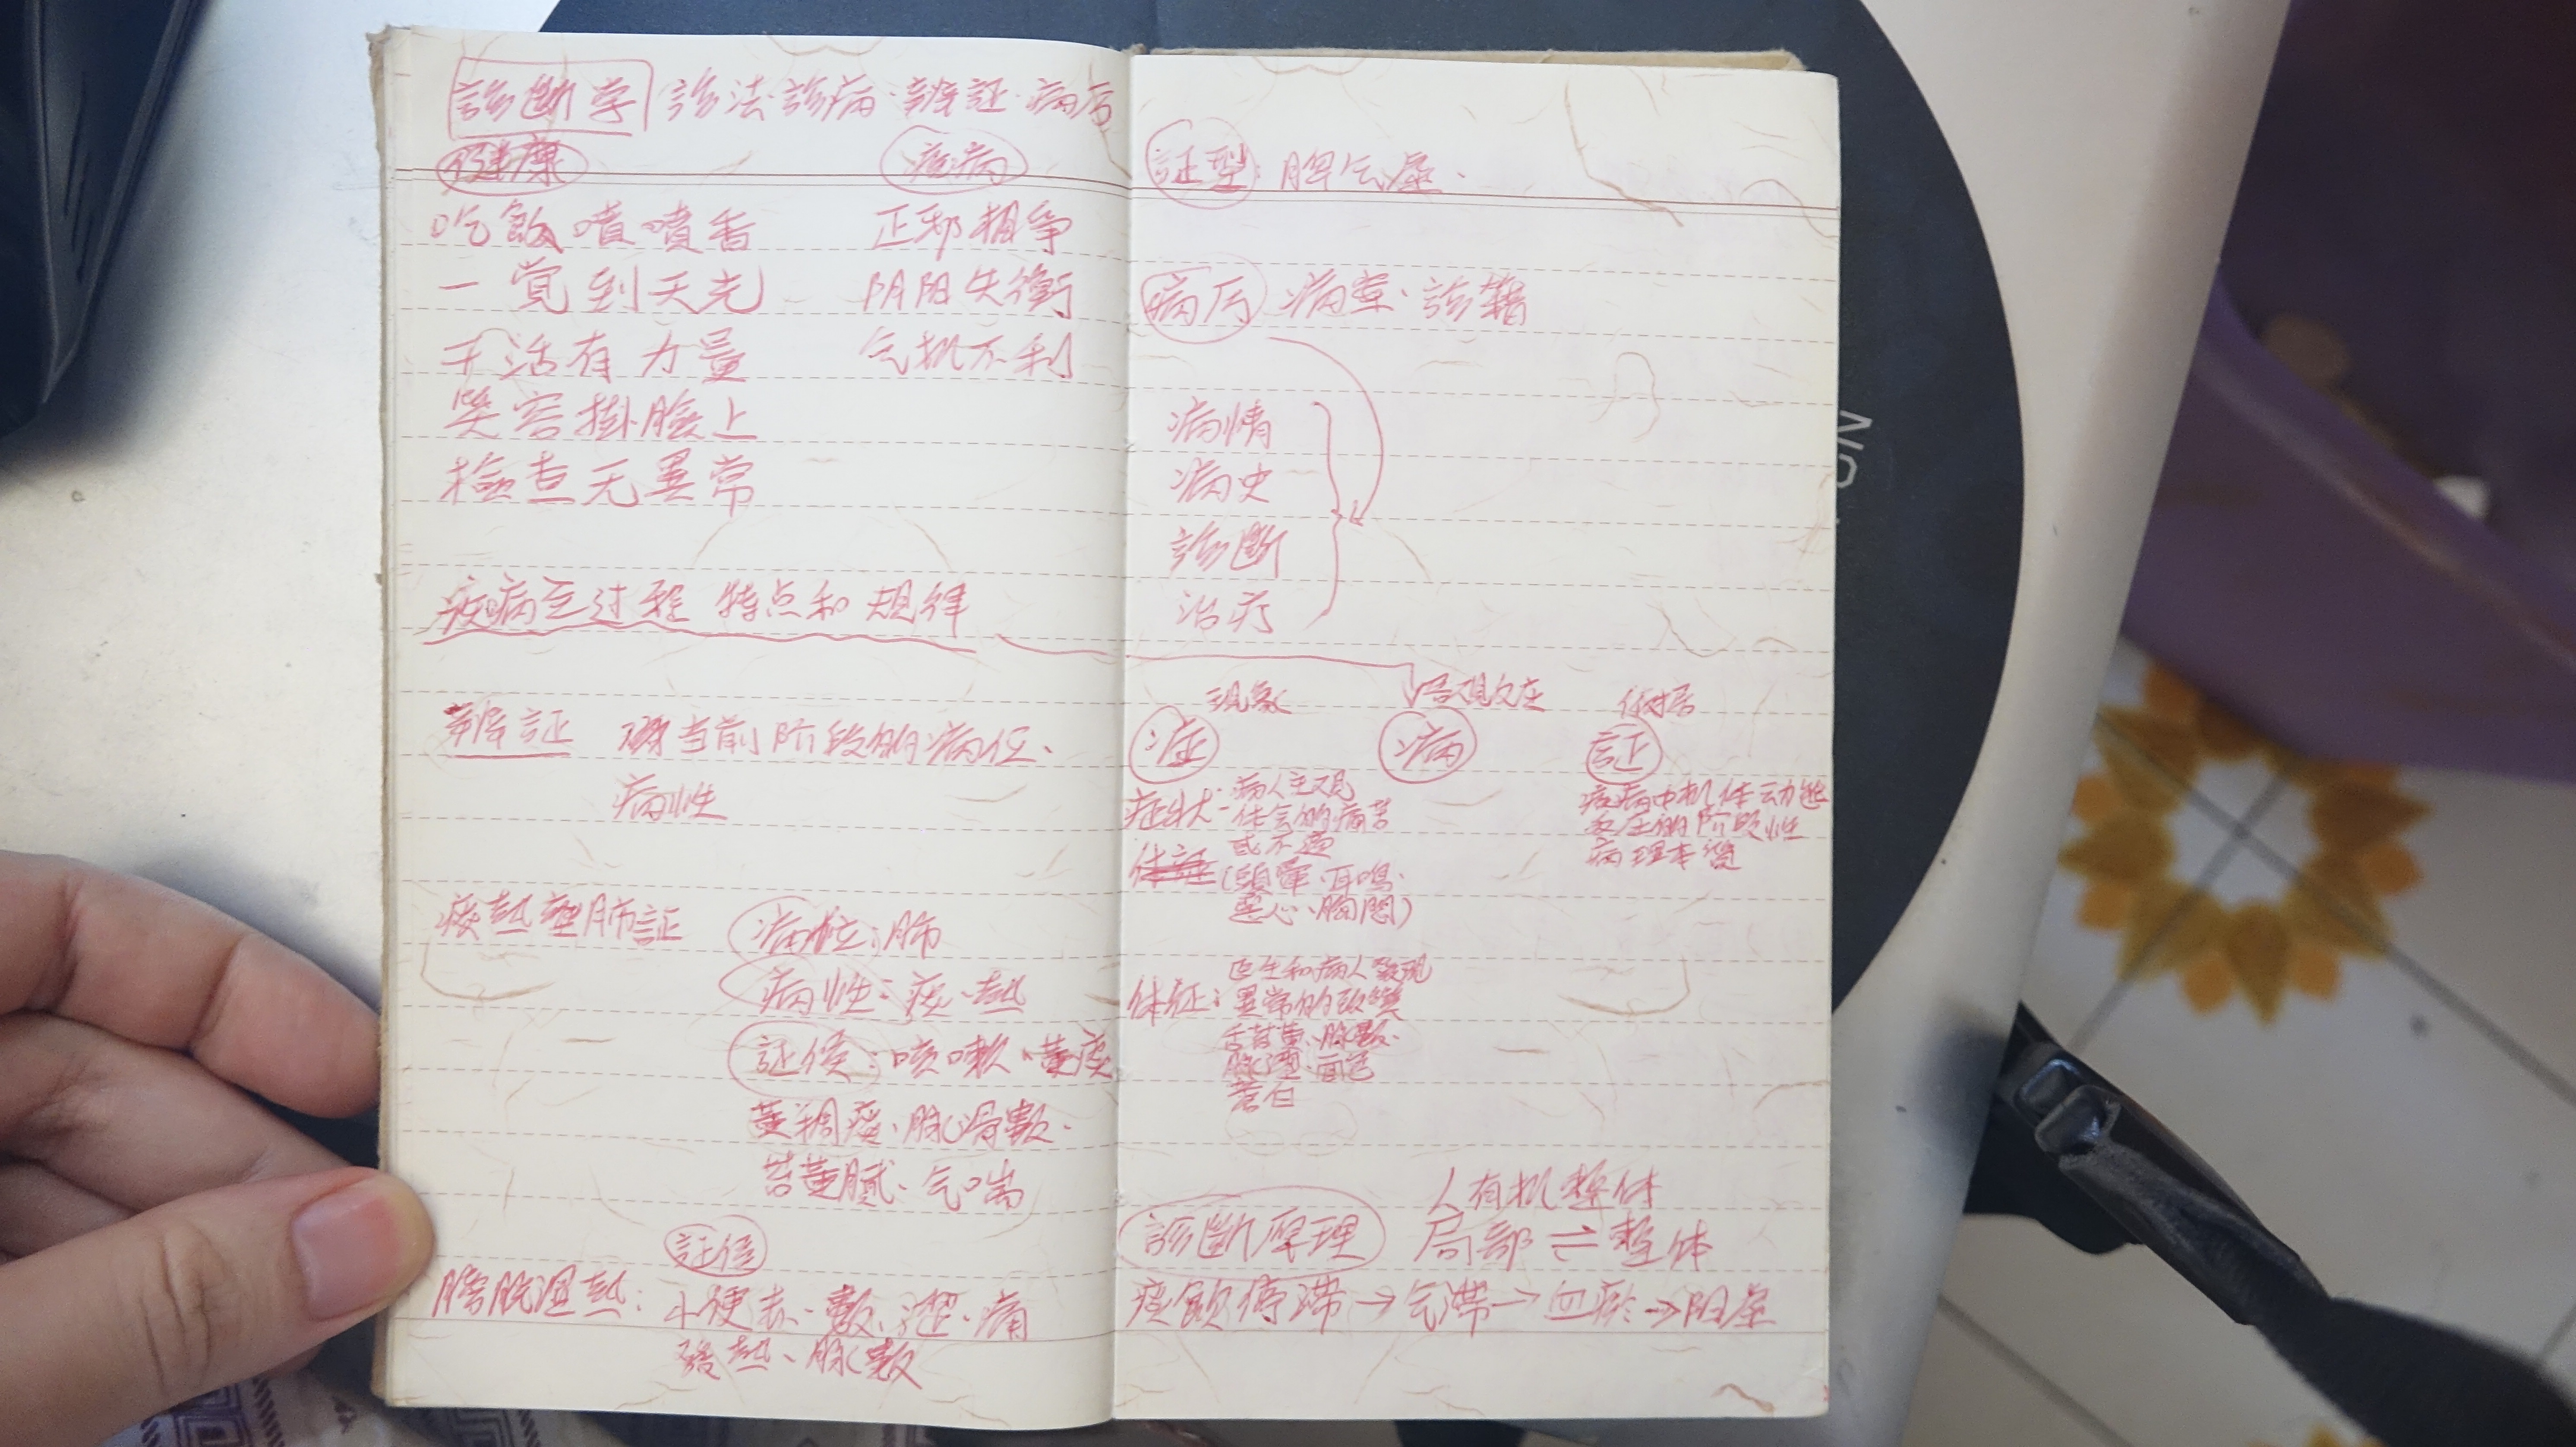 診断学 診法診病·辨証·病历
健康 疾病
吃飯噴噴香 正邪相争
一覚到天光 阴阳失衡
干活有力量 气机不利
笑容掛臉上
檢查无異常
疾病全过程 特点和規律
辨証 当前阶段的病位、
病性
痰熱壅肺証 病位:肺
病性:痰、熱
証候:咳嗽、黄痰
黄稠痰、脉滑數、
苔黄膩、气喘
証候
膀胱湿熱: 小便赤、數、涩、痛
發熱、脉數
証型:脾气虛.
病历 病案·診籍
病情
病史
診断
治疗
現象
症 病 証
症状- 病人主观
体会的痛苦
或不適
(頭暈、耳鳴、
惡心、胸悶)
疾病中机体动态
反应的阶段性
病理本質
体征: 医生和病人發現
異常的改變
舌苔黄、脉數、
面色
苍白
人有机整体
診断原理 局部⇌整体
痰飲停滯→气滯→血瘀→阳虛
NO